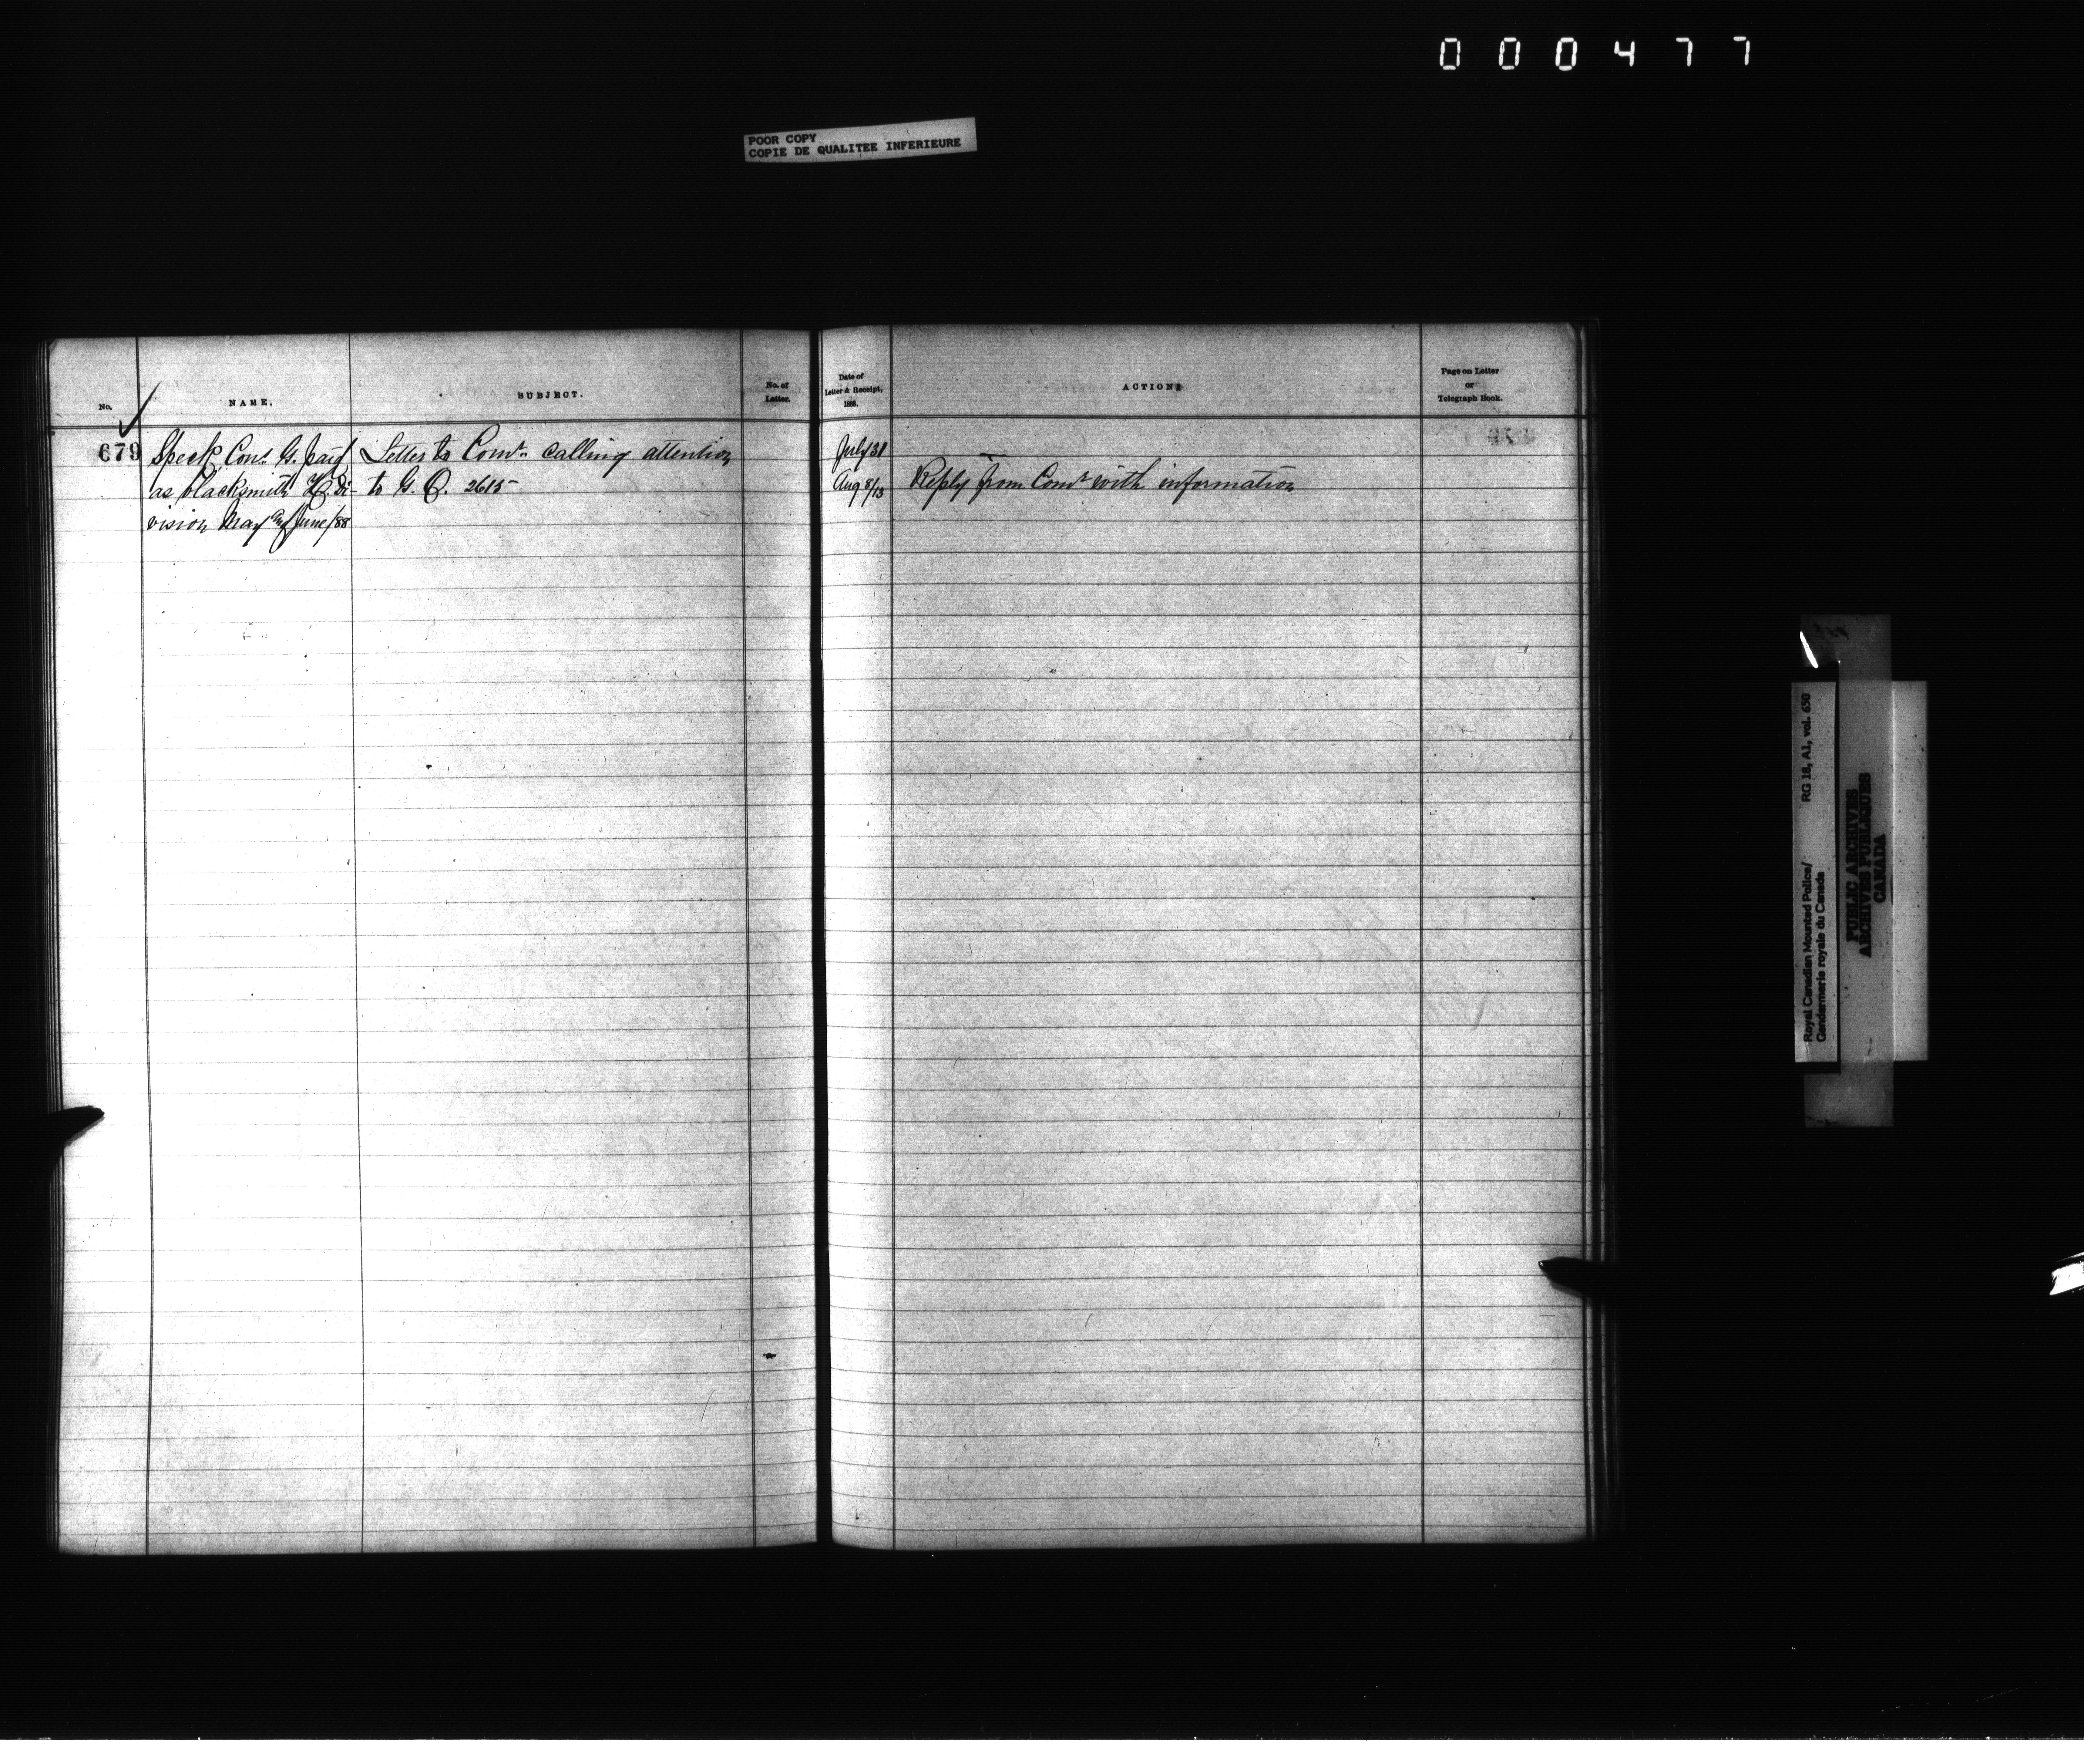 000477
POOR COPY
COPIE DE QUALITEE INFERIEURE
No. NAME. SUBJECT. No. of Letter.
679 Speck, Const. G. paid Letter to Comr. calling attention
as blacksmith Di- to G. O. 2615
vision May and June/88
Date of Letter & Receipt, 1888. ACTION Page on Letter or Telegraph Book.
July 31
Aug 8/13 Reply from Comr with information
Royal Canadian Mounted Police/ RG 18, A1, vol. 650
Gendarmerie royale du Canada
PUBLIC ARCHIVES
ARCHIVES PUBLIQUES
CANADA